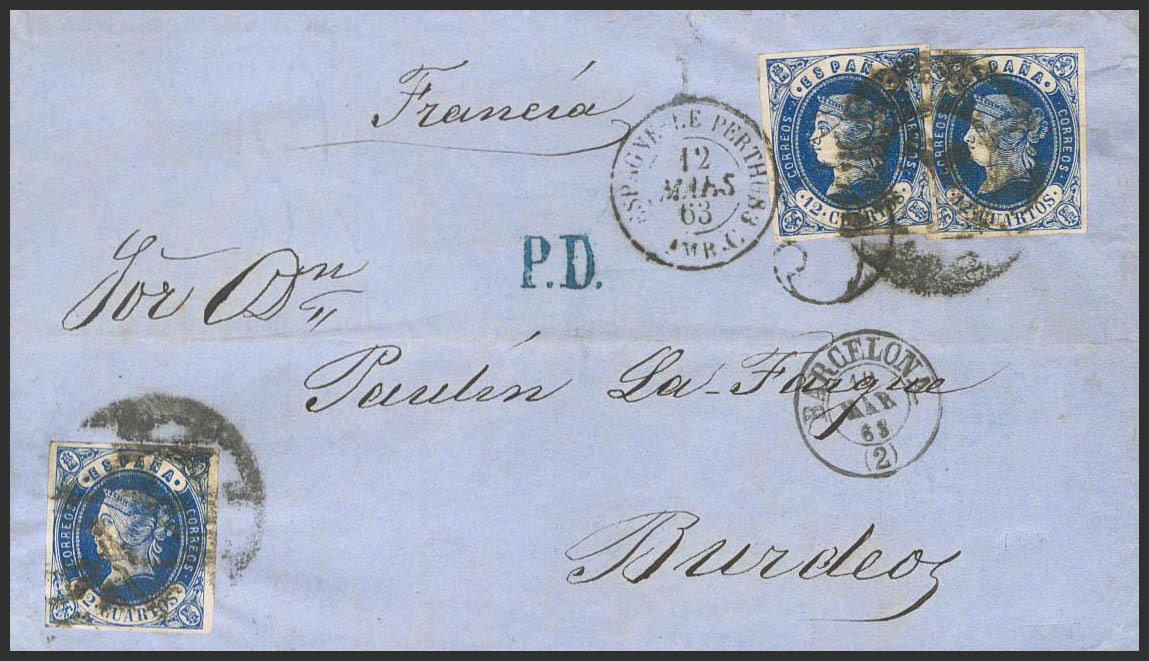 Francia
ESPAGNE-LE PERTHUS 3
12
MARS
63
AMB.C.
ESPAÑA
CORREOS
CORREOS
12·CUARTOS·
ESPAÑA
CORREOS
12·CUARTOS·
P.D.
Sor Dn
Paulín La-Fargue
BARCELONA
MAR
63
(2)
ESPAÑA
CORREOS
CORREOS
12·CUARTOS·
Burdeos